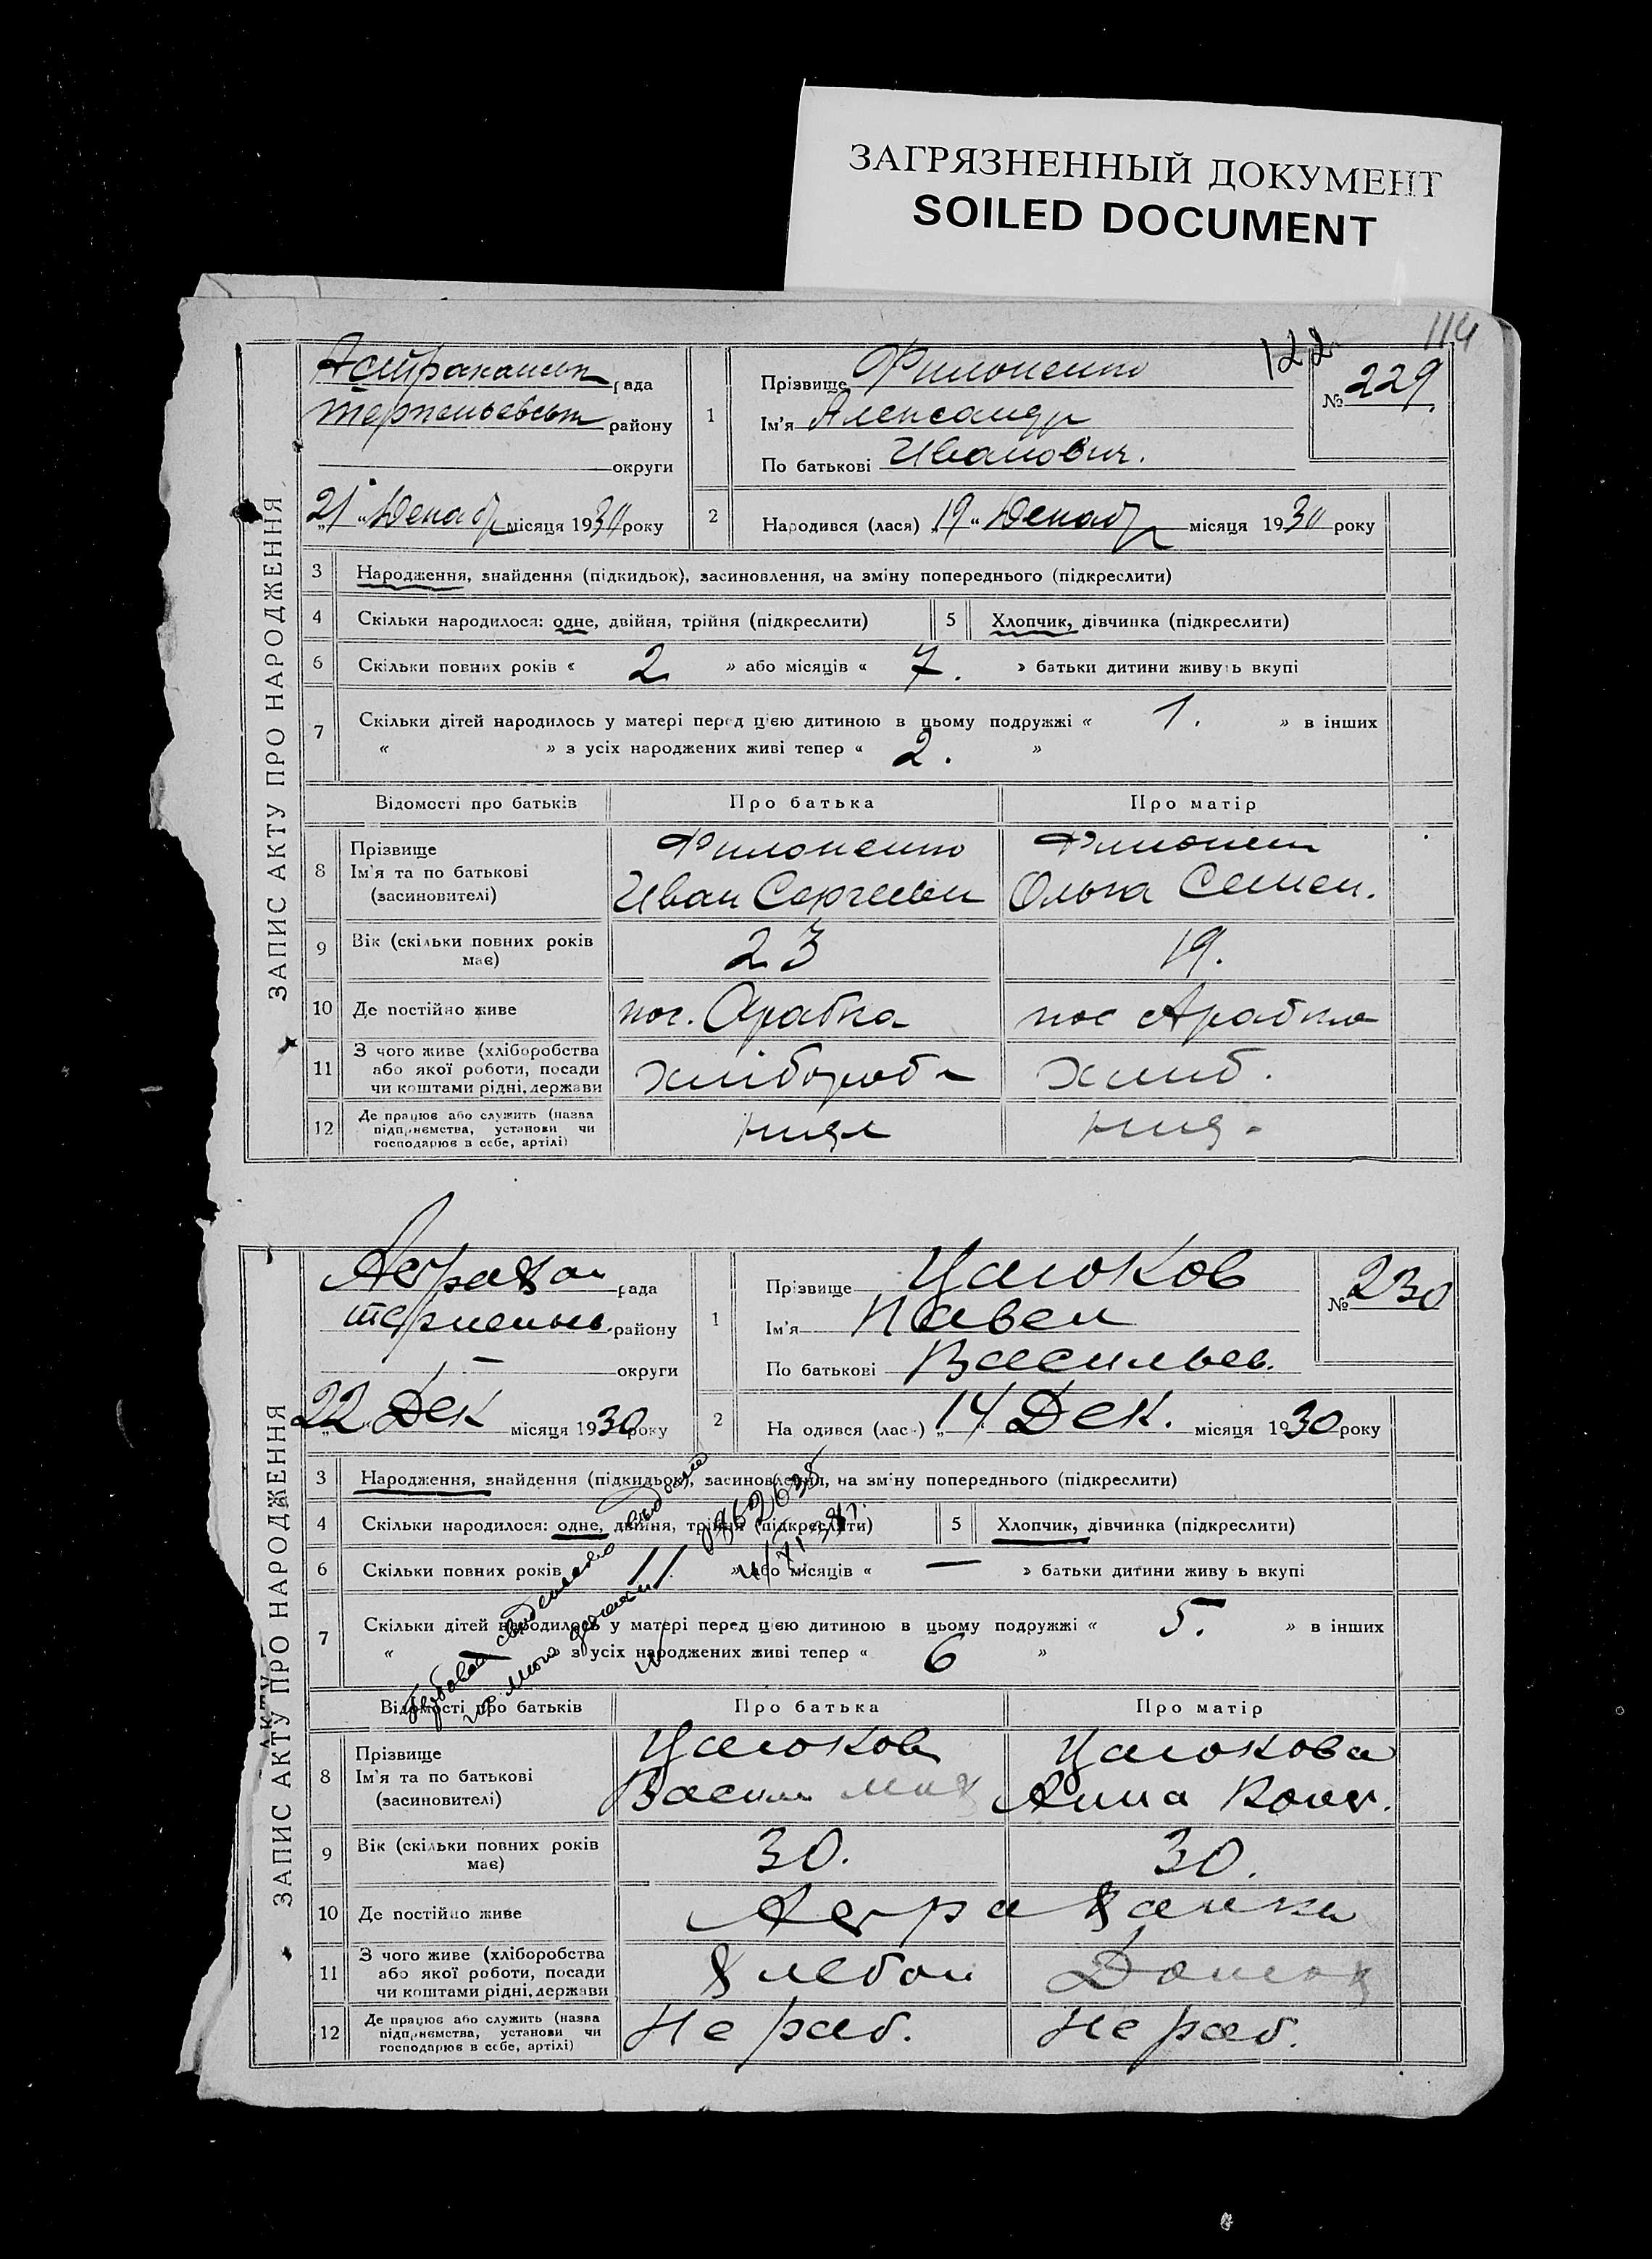 ЗАГРЯЗНЕННЫЙ ДОКУМЕНТ
SOILED DOCUMENT
114
122
ЗАПИС АКТУ ПРО НАРОДЖЕННЯ
Астраханськ рада
района
округи
„21“ Декабр місяця 1930 року
1
Прізвище Филоненко
Ім'я Александр
По батькові Иванович.
№ 229
2 Народився (лася) „19“ Декабр місяця 1930 року
3 Народження, знайдення (підкидьок), засиновлення, на зміну попереднього (підкреслити)
4 Скільки народилося: одне, двійня, трійня (підкреслити) 5 Хлопчик, дівчинка (підкреслити)
6 Скільки повних років « 2 » або місяців « 7. » батьки дитини живуть вкупі
7 Скільки дітей народилось у матері перед цією дитиною в цьому подружжі « 1. » в інших
« » з усіх народжених живі тепер « 2. »
Відомості про батьків Про батька Про матір
8 Прізвище Филоненко
Ім'я та по батькові Иван Ольга Семен.
(засиновителі)
9 Вік (скільки повних років 23 19.
має)
10 Де постійно живе пос. Арабка пос Арабка
11 З чого живе (хліборобства
або якої роботи, посади хлібороб хлиб.
чи коштами рідні, держави
12 Де працює або служить (назва
підприємства, установи чи
господарює в себе, артілі)
ЗАПИС АКТУ ПРО НАРОДЖЕННЯ
Астрахан рада
району
— округи
„22 Дек місяця 1930 року
1
Прізвище Цалоков
Ім'я Павел
По батькові Васильев.
№ 230
2 Народився (лася) „14 Дек. місяця 1930 року
3 Народження, знайдення (підкидьок), засиновлення, на зміну попереднього (підкреслити)
4 Скільки народилося: одне, двійня, трійня (підкреслити) 5 Хлопчик, дівчинка (підкреслити)
6 Скільки повних років 11 » або місяців « — » батьки дитини живуть вкупі
7 Скільки дітей народилось у матері перед цією дитиною в цьому подружжі « 5. » в інших
« — з усіх народжених живі тепер « 6 »
Відомості про батьків Про батька Про матір
8 Прізвище Цалоков Цалокова
Ім'я та по батькові Васили Мих Анна
(засиновителі)
9 Вік (скільки повних років 30. 30.
має)
10 Де постійно живе Астраханка
11 З чого живе (хліборобства
або якої роботи, посади хлебоп Домох
чи коштами рідні, держави
12 Де працює або служить (назва
підприємства, установи чи Не раб. Не раб.
господарює в себе, артілі)